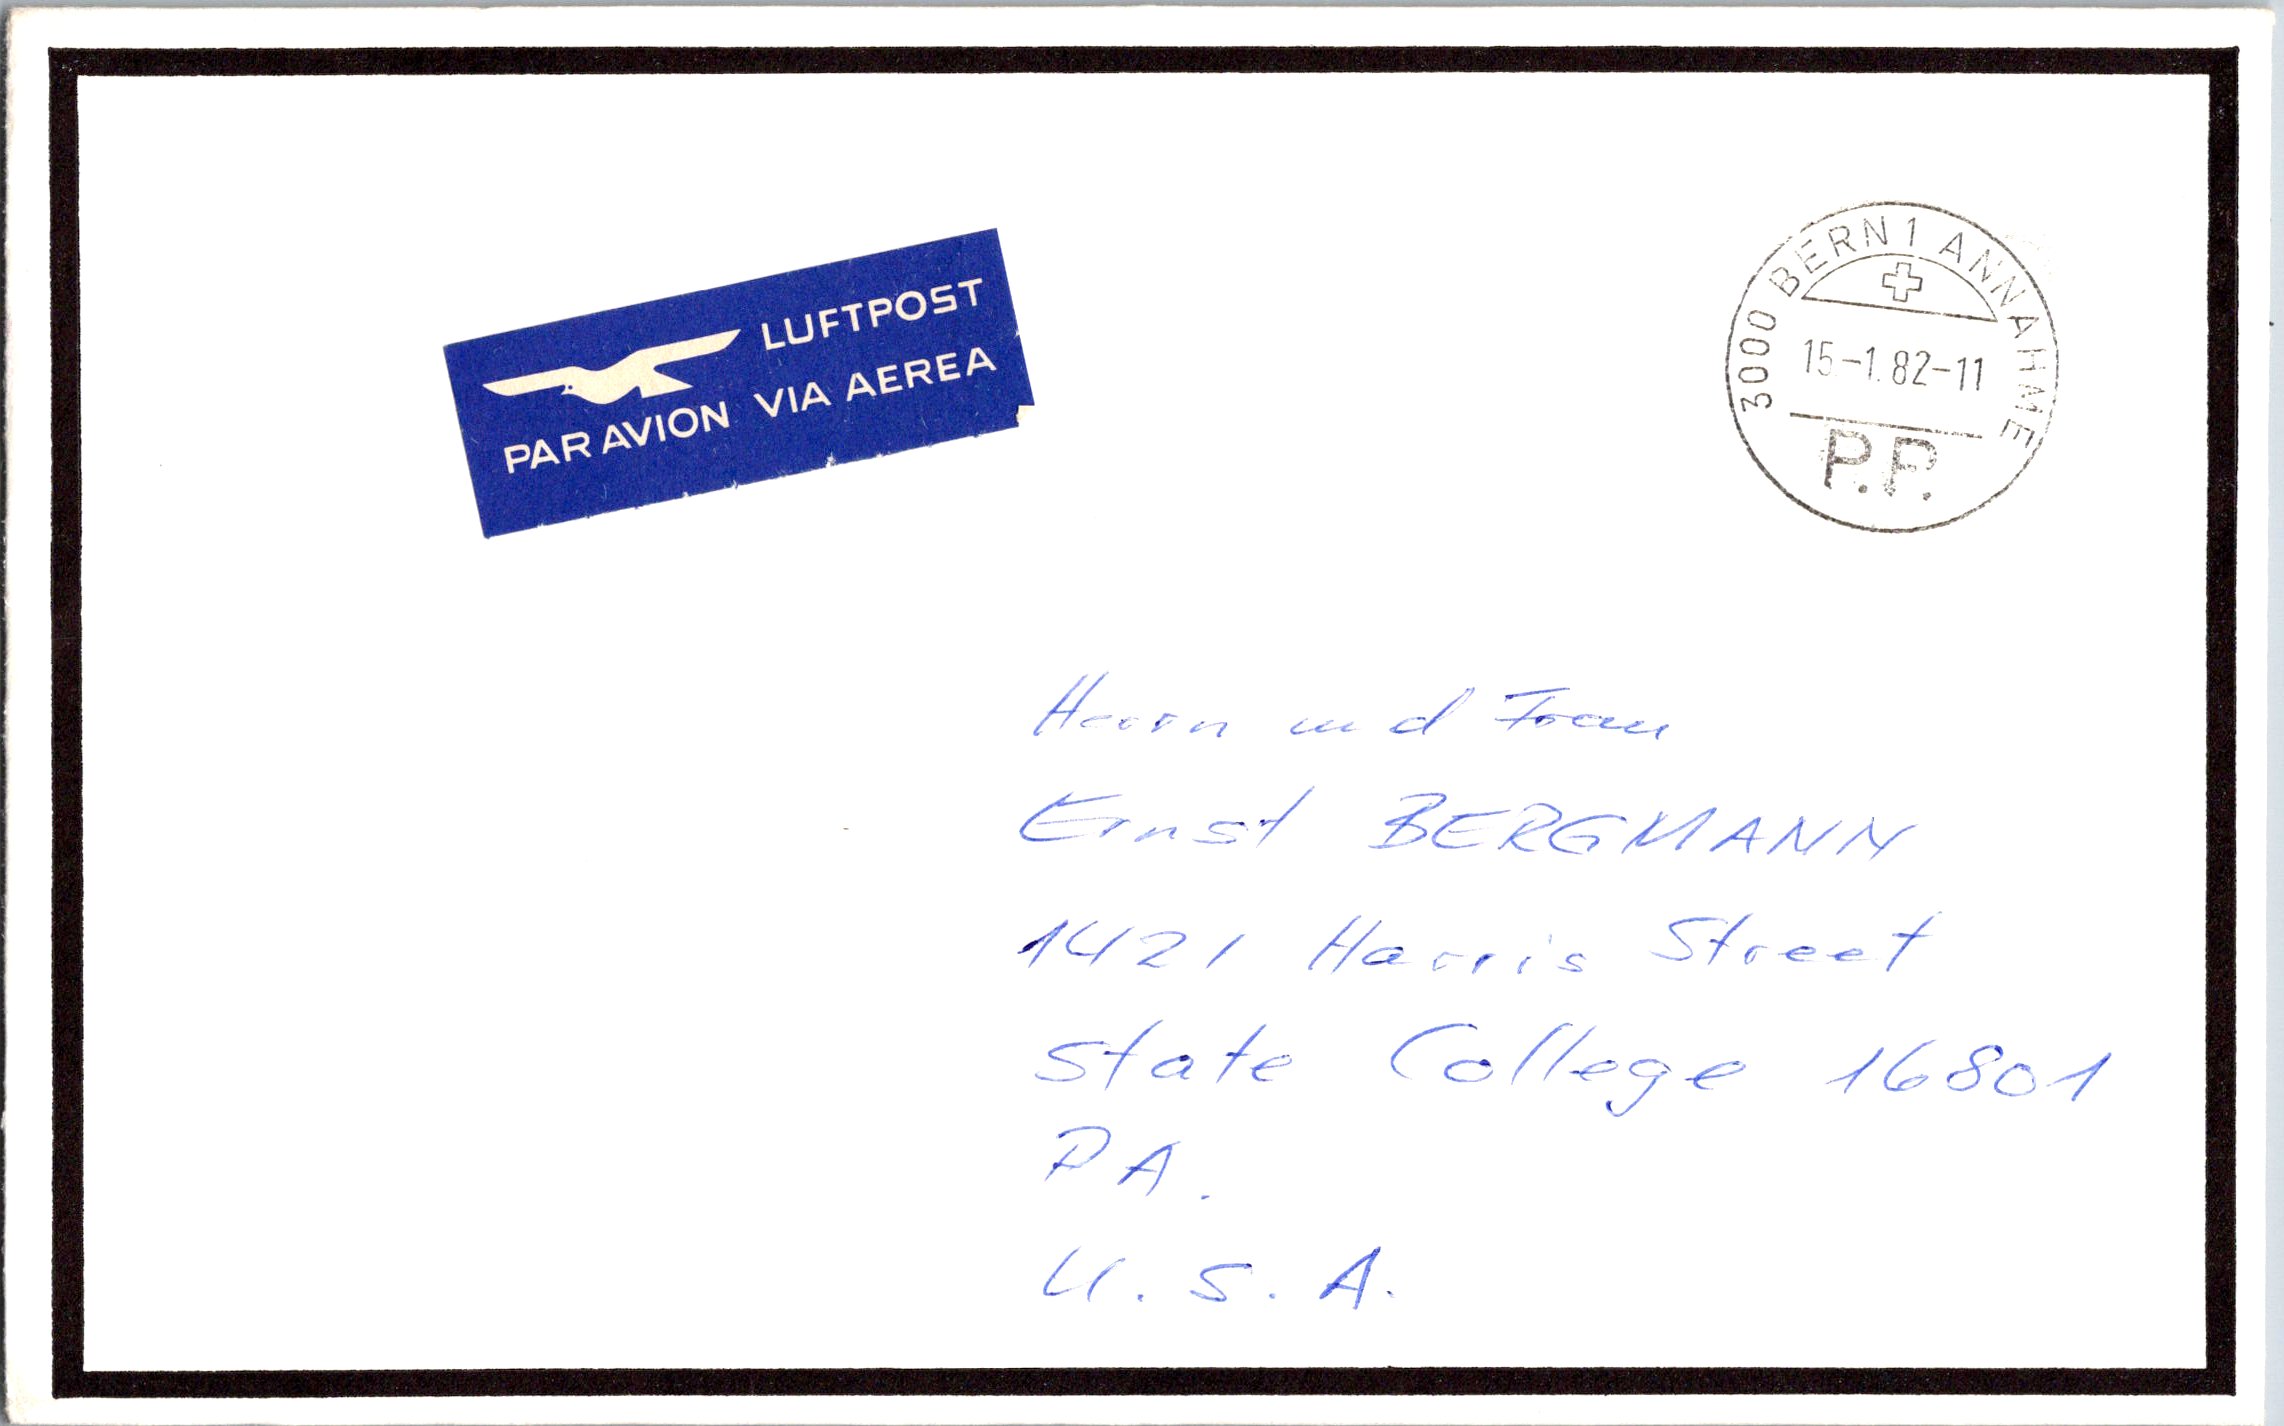 LUFTPOST
PAR AVION VIA AEREA
3000 BERN 1 ANNAHME
15-1.82-11
P.P.
Herrn und Frau
Ernst BERGMANN
1421 Harris Street
State College 16801
PA.
U.S.A.